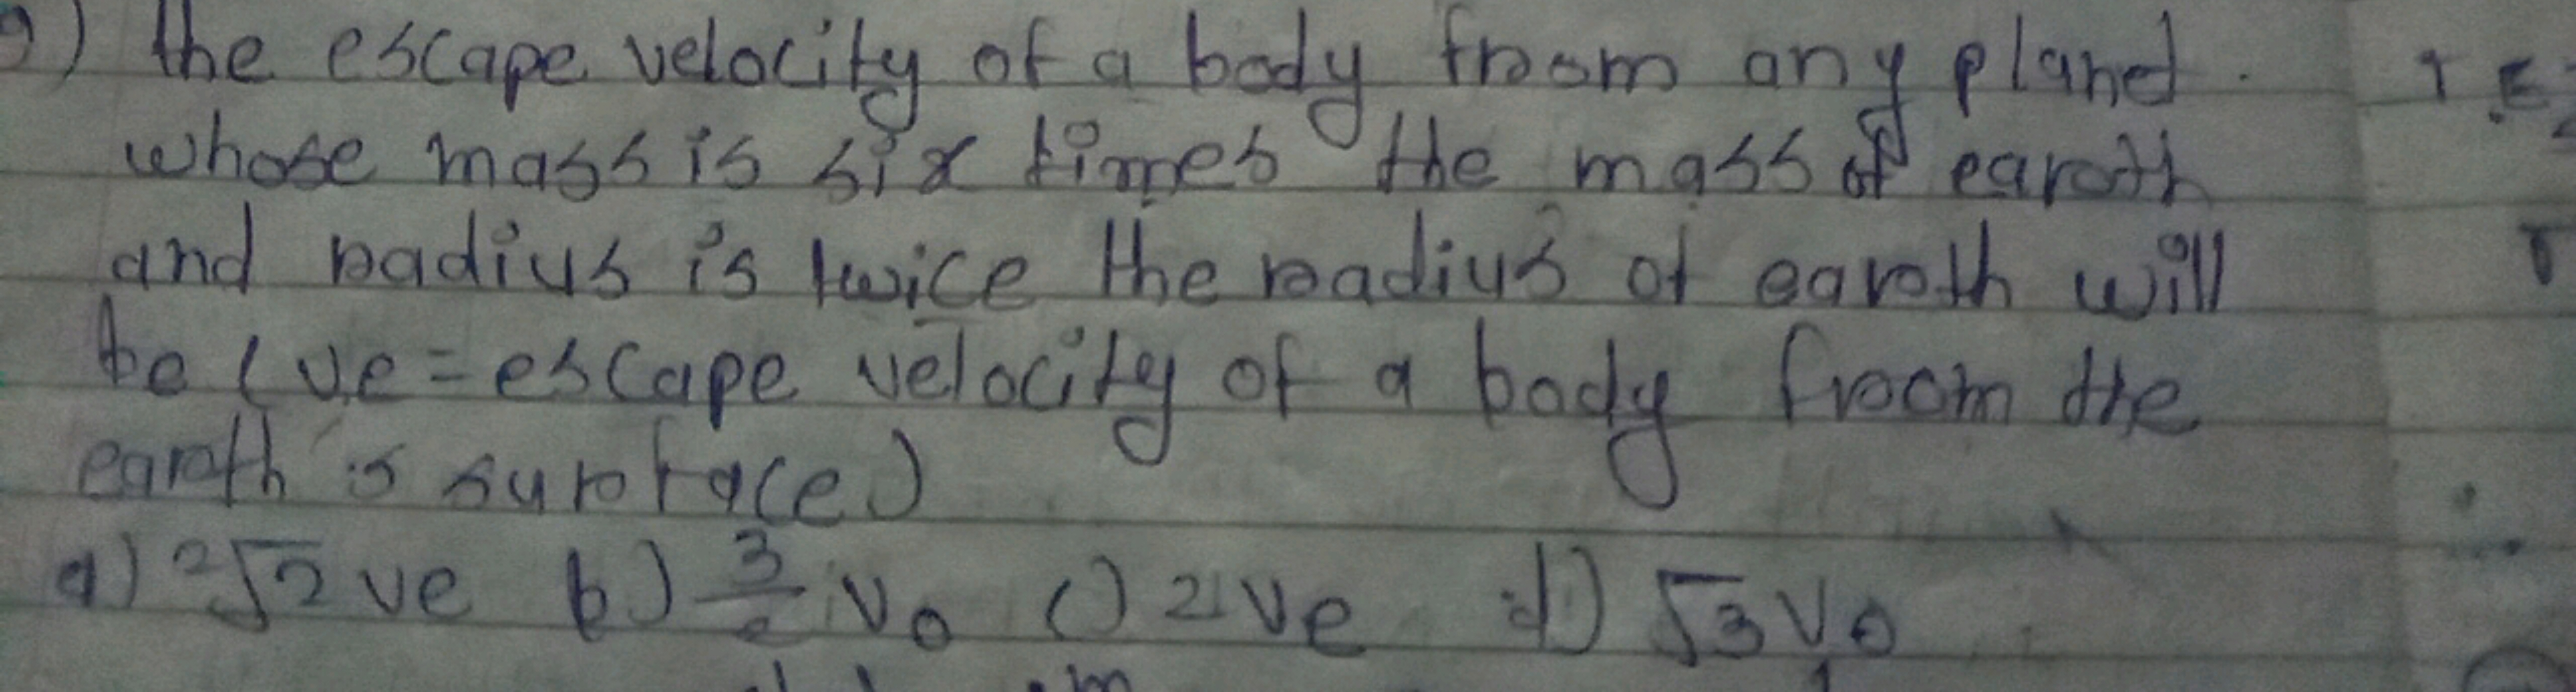 9) the escape velocity of a body from any planet.
whose mass is six times the mass of earth
and radius is twice the radius of earth will
be (ve = escape velocity of a body from the
earth's surface)
a) 2√2 ve b) 3/2 ve c) 2ve d) √3 ve